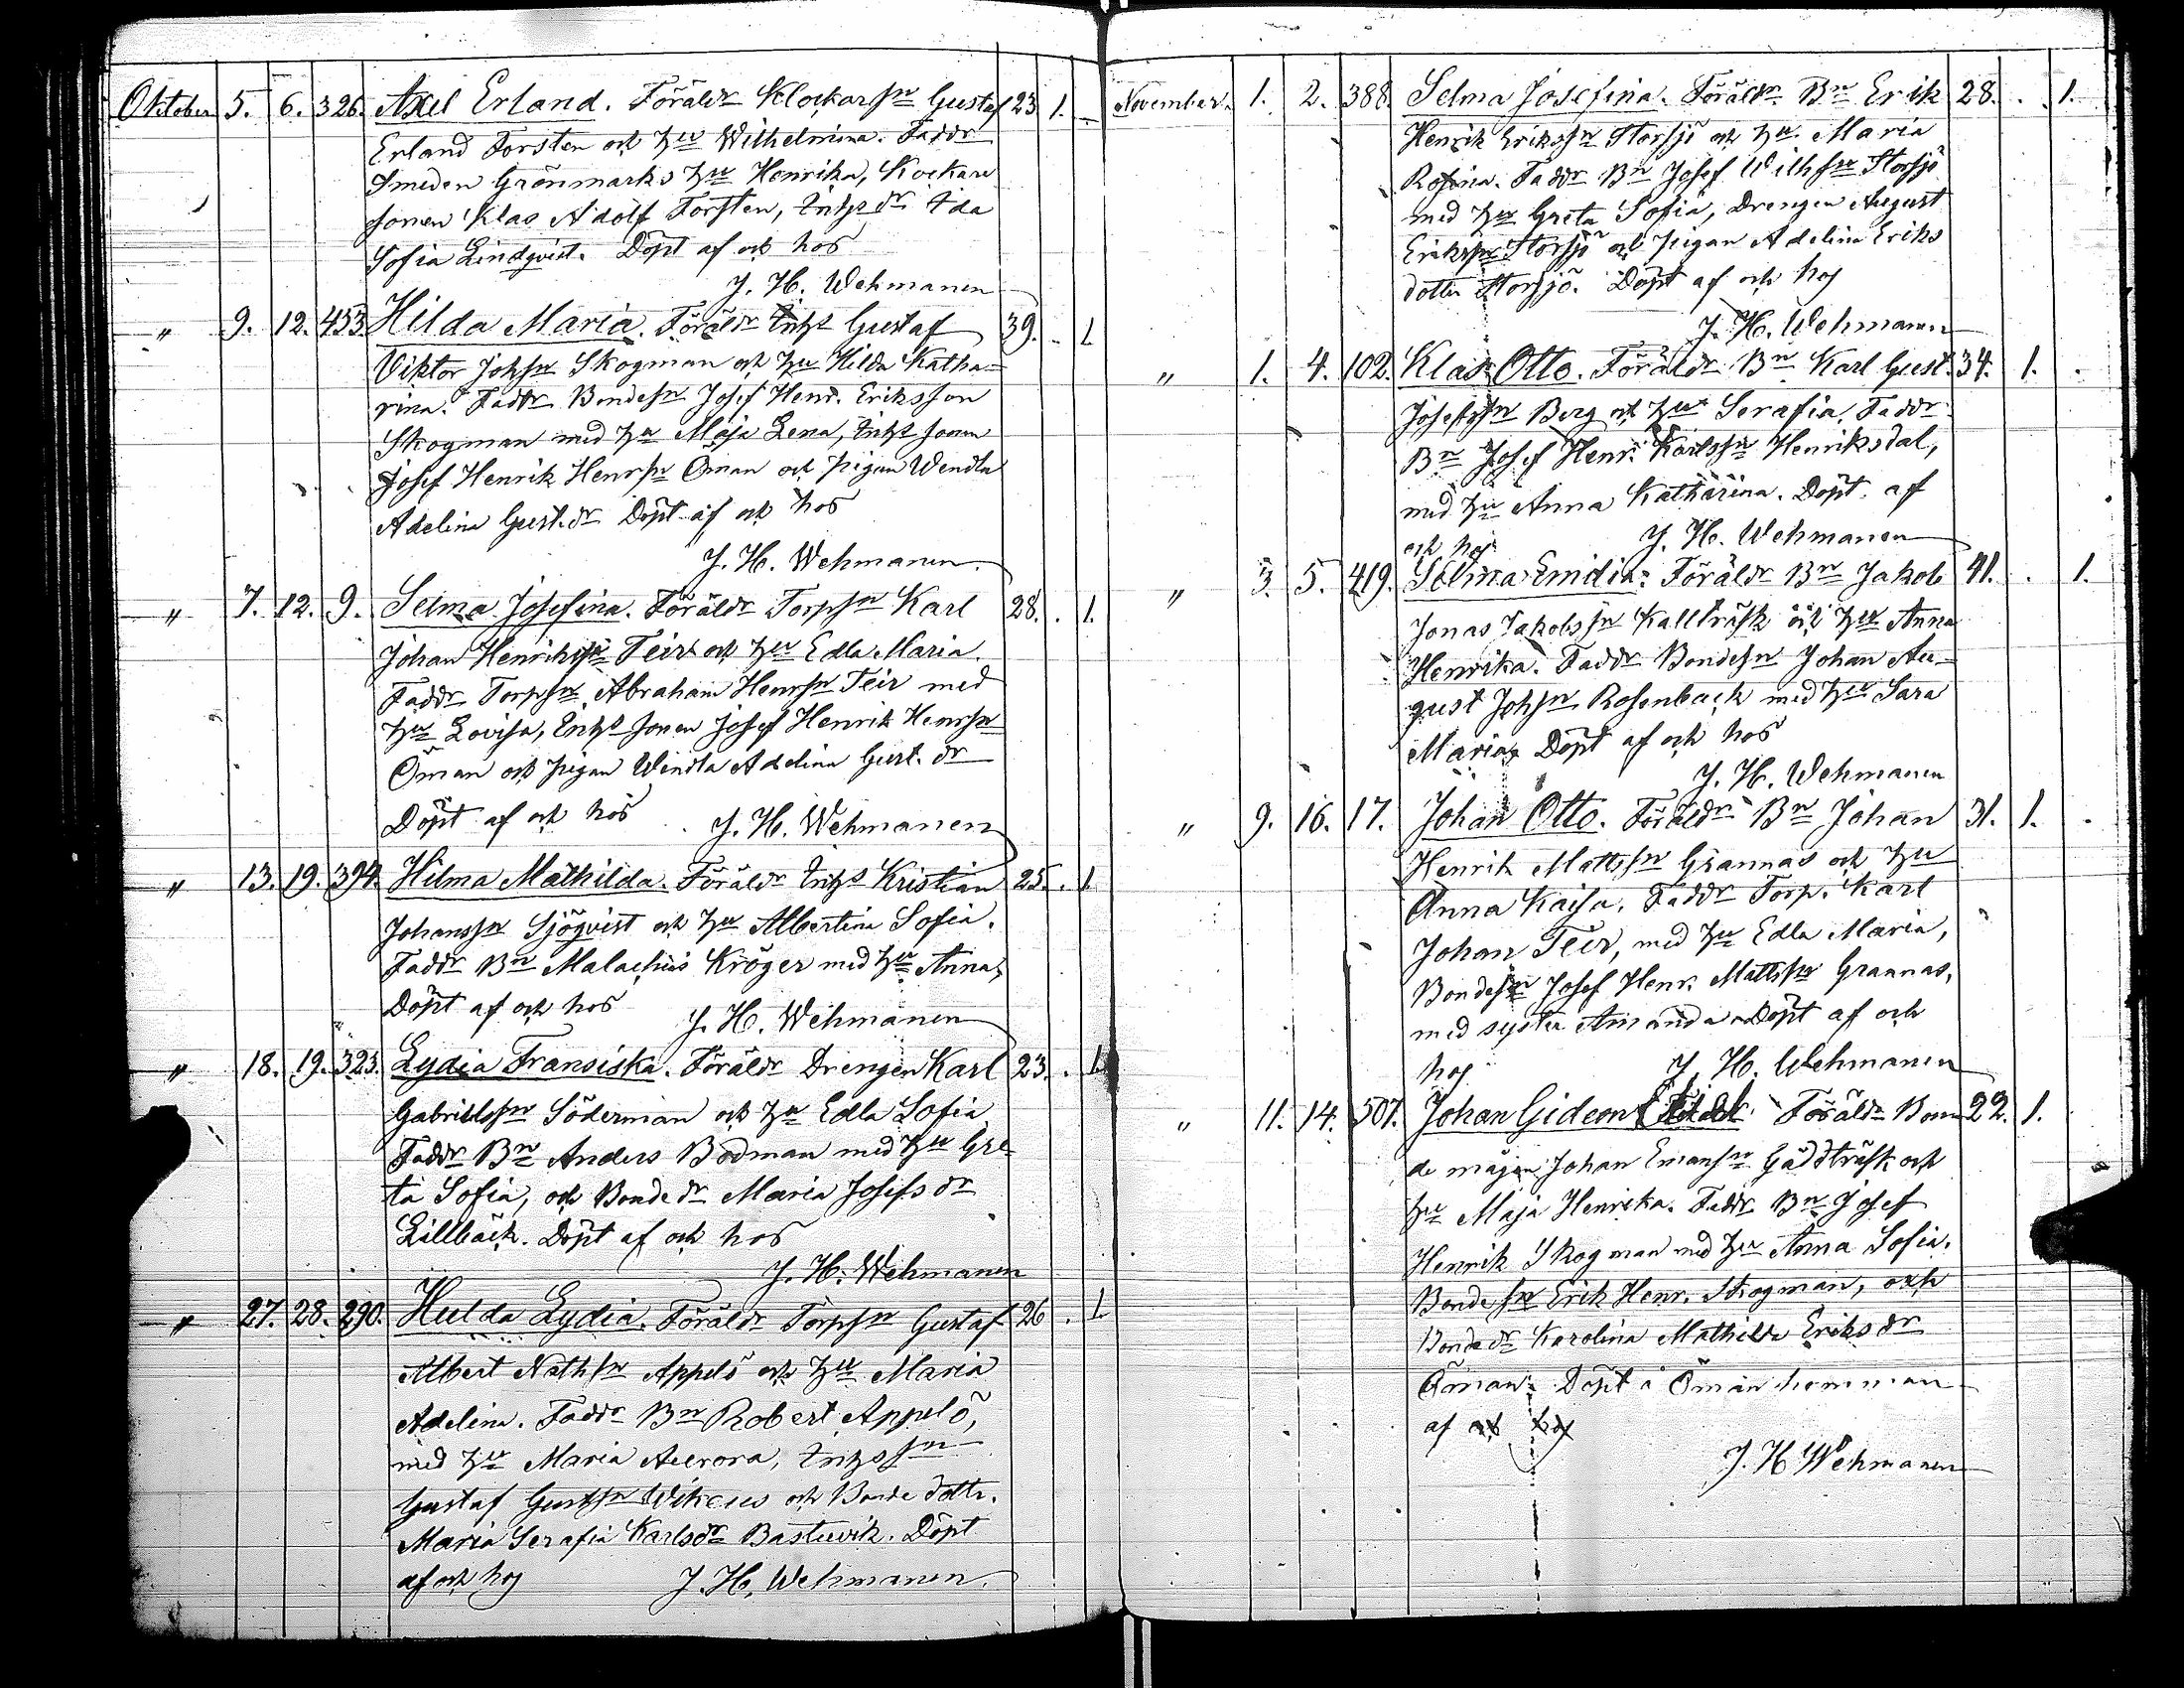 Oktober 5. 6. 326. Axel Erland. Föräldr Klockarsn Gustaf 23 1.
Erland Forsten och hu Wilhelmina. Faddr
Smeden Grönmarks hu Henrika, Kockare
sonen Klas Adolf Forsten, Inhs dr Ida
Sofia Lindqvist. Döpt af och hos
J. H. Wehmanen
" 9. 12. 453. Hilda Maria. Föräldr Inhs Gustaf 39. . 1.
Viktor Johsn Skogman och hu Hilda Katha-
rina. Faddr Bondesn Josef Henr. Eriksson
Skogman med hu Maja Lena, Inhs sonen
Josef Henrik Henrsn Öman och pigan Wendla
Adelina Gust.dr Döpt af och hos
J. H. Wehmanen.
" 7. 12. 9. Selma Josefina. Föräldr Torpsn Karl 28. . 1.
Johan Henrikssn Teir och hu Edla Maria.
Faddr Torpsn Abraham Henrsn Teir med
hu Lovisa, Inhs sonen Josef Henrik Henrsn
Öman och pigan Wendla Adelina Gust. dr
Döpt af och hos J. H. Wehmanen
" 13. 19. 394. Hilma Mathilda. Föräldr Inhs Kristian 25. . 1.
Johanssn Sjöqvist och hu Albertina Sofia.
Faddr Bn Malachias Kröger med hu Anna,
Döpt af och hos J. H. Wehmanen
" 18. 19. 323. Lydia Fransiska. Föräldr Drengen Karl 23. . 1.
Gabrielssn Söderman och hu Edla Sofia
Faddr Bn Anders Bodman med hu Gre-
ta Sofia, och Bonde dr Maria Josefs dr
Lillbäck. Döpt af och hos
J. H. Wehmanen
" 27. 28. 290. Hulda Lydia. Föräldr Torpsn Gustaf 26 . 1.
Albert Nathsn Appelö och hu Maria
Adelina. Faddr Bn Robert Appelö,
med hu Maria Aurora, Inhs sn
Gustaf Gustsn och Bonde dottr.
Maria Serafia Karlsdr Bastuvik. Döpt
af och hos J. H. Wehmanen.
November. 1. 2. 388. Selma Josefina. Föräldr Bn Erik 28. . 1.
Henrik Erikssn Storsjö och hu Maria
Rosina. Faddr Bn Josef Wilhsn Storsjö
med hu Greta Sofia, Drengen August
Erikssn Storsjö och pigan Adelina Eriks
dotter Storsjö. Döpt af och hos
J. H. Wehmanen
" 1. 4. 102. Klas Otto. Föräldr Bn Karl Gust. 34. 1. .
Josefssn Berg och hu Serafia, Faddr
Bn Josef Henr. Karlssn Henriksdal,
med hu Anna Katharina. Döpt af
och hos J. H. Wehmanen
" 3. 5. 419. Selma Emilia. Föräldr Bn Jakob 41. . 1.
Jonas Jakobssn Kallträsk och hu Anna
Henrika. Faddr Bondesn Johan Au-
gust Johsn Rosenback med hu Sara
Maria, Döpt af och hos
J. H. Wehmanen
" 9. 16. 17. Johan Otto. Föräldr Bn Johan 31. 1. .
Henrik Mattssn Grannas och hu
Anna Kaisa. Faddr Torp. Karl
Johan Teir, med hu Edla Maria,
Bondesn Josef Henr. Mattssn Grannas,
med syster Amanda. Döpt af och
hos J. H. Wehmanen
" 11. 14. 507. Johan Gideon Föräldr Bon 22. 1.
de mågen Johan Emansn Gäddträsk och
hu Maja Henrika. Faddr Bn Josef
Henrik Skogman med hu Anna Sofia.
Bonde sn Erik Henr. Skogman, och
Bonde dr Karolina Mathilda Eriks dr
Öman. Döpt å Öman hemman
af och hos
J. H Wehmanen